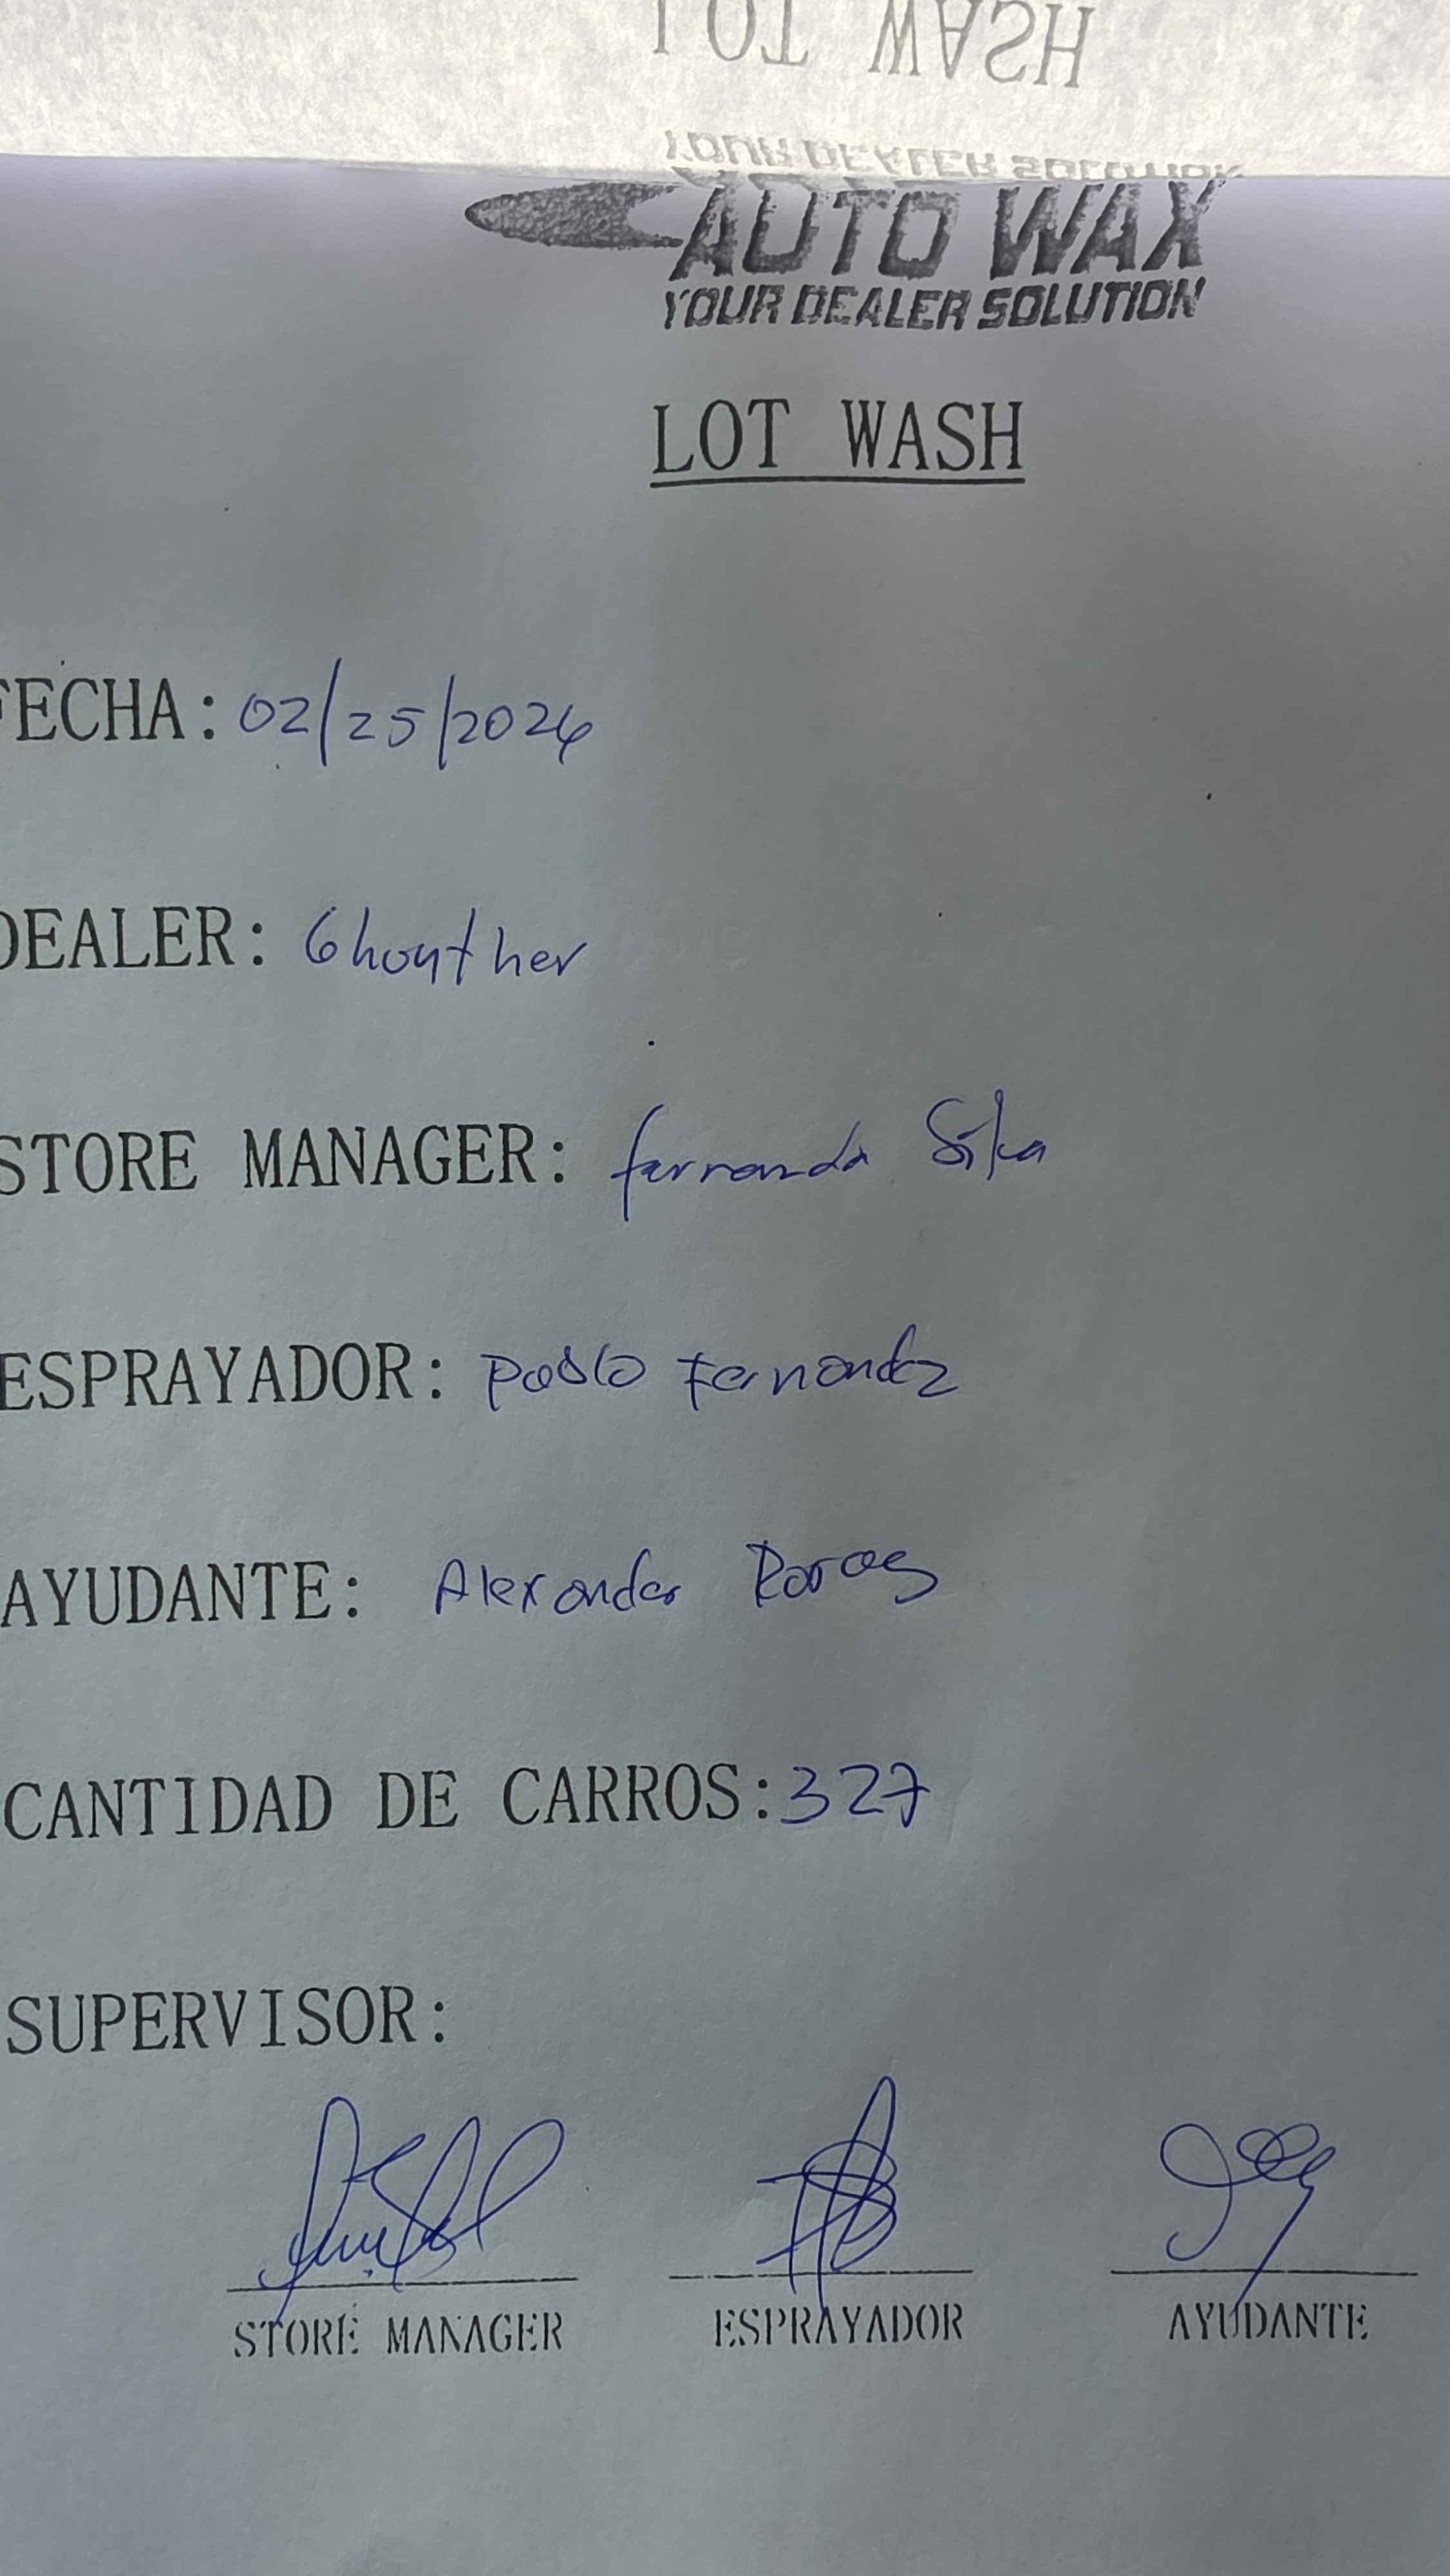 LOT WASH
YOUR DEALER SOLUTION
AUTO WAX
YOUR DEALER SOLUTION
LOT WASH
FECHA: 02/25/2026
DEALER: Ghounther
STORE MANAGER: fernanda Silva
ESPRAYADOR: Pablo Fernandez
AYUDANTE: Alexander
CANTIDAD DE CARROS: 327
SUPERVISOR:
STORE MANAGER ESPRAYADOR AYUDANTE